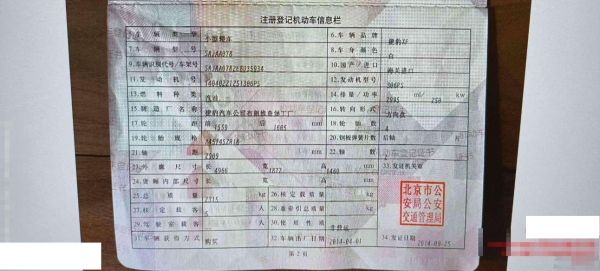 注册登记机动车信息栏
5.车辆类型 小型轿车 6.车辆品牌 捷豹牌
7.车辆型号 SAJAA07B 8.车身颜色 白
9.车辆识别代号/车架号 10.国产/进口 进口
11.发动机号 12.发动机型号 306PS
13.燃料种类 汽油 14.排量/功率 2995 ml/ 250 kw
15.制造厂名称 16.转向形式 方向盘
17.轮距 前 1559 后 1605 mm 18.轮胎数 4
19.轮胎规格 245/45ZR18 20.钢板弹簧片数 后轴 片
21.轴距 2909 mm 22.轴数 2
23.外廓尺寸 长 4966 宽 1877 高 1460 mm 33.发证机关章
24.货厢内部尺寸 长 宽 高 mm
25.总质量 2315 kg 26.核定载质量 kg
27.核定载客 5 人 28.准牵引总质量 kg
29.驾驶室载客 人 30.使用性质 非营运
31.车辆获得方式 购买 32.车辆出厂日期 2014-04-01 34.发证日期 2014-09-25
北京市公
安局公安
交通管理局
第2页